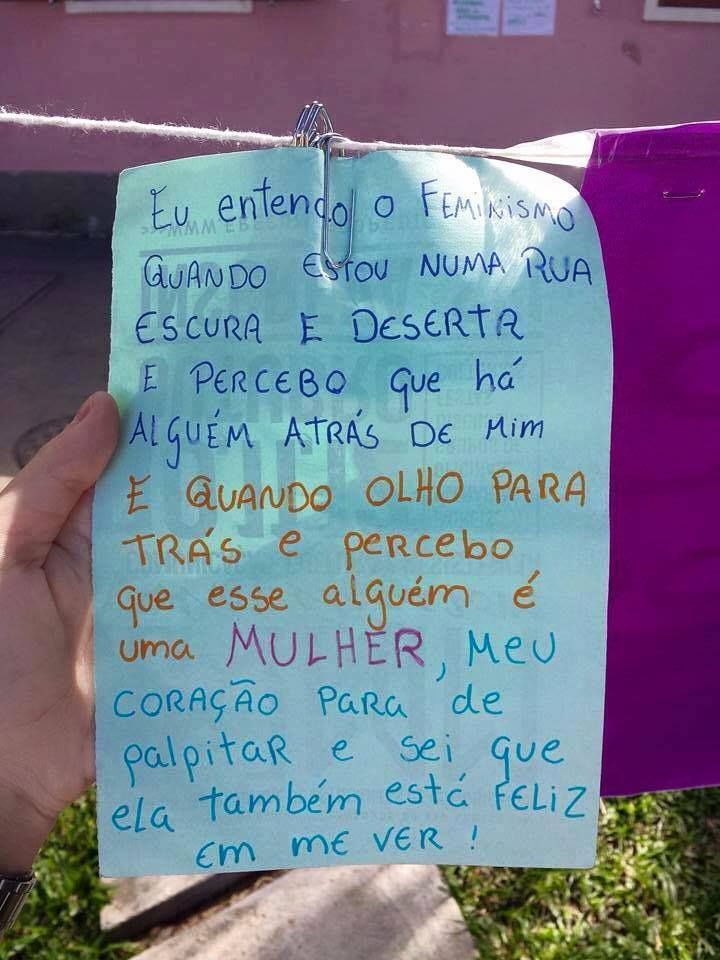 Eu entendo o FEMINISMO
QUANDO ESTOU NUMA RUA
ESCURA E DESERTA
E PERCEBO que há
ALGUÉM ATRÁS DE MIM
E QUANDO OLHO PARA
TRÁS e percebo
que esse alguém é
uma MULHER, MEU
CORAÇÃO PARA de
palpitar e sei que
ela também está FELIZ
EM ME VER !